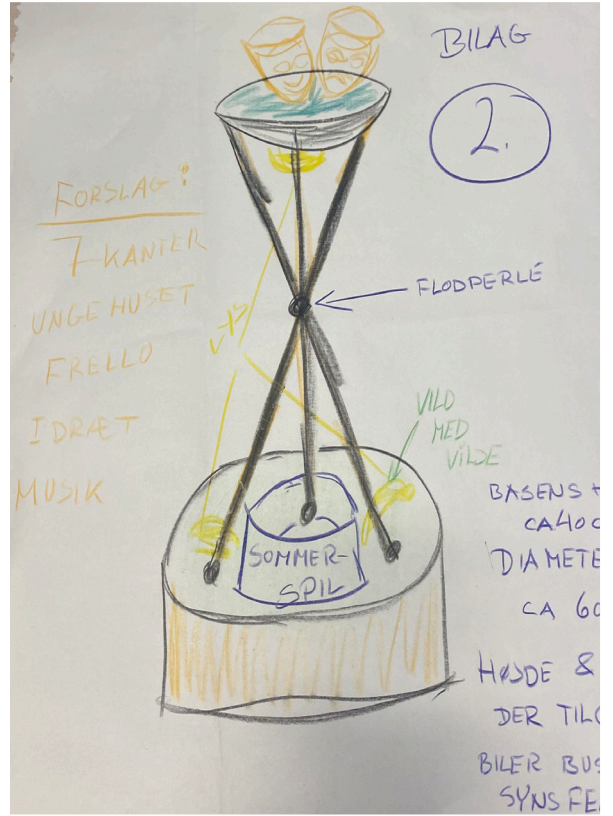 BILAG
2.
FORSLAG:
7-KANTER
UNGEHUSET
FRELLO
IDRÆT
MUSIK
FLODPERLE
LYS
VILD
MED
VILDE
SOMMER-
SPIL
BASENS
CA 40
DIAMETE
CA 60
HØJDE &
DER
BILER BUS
SYNS